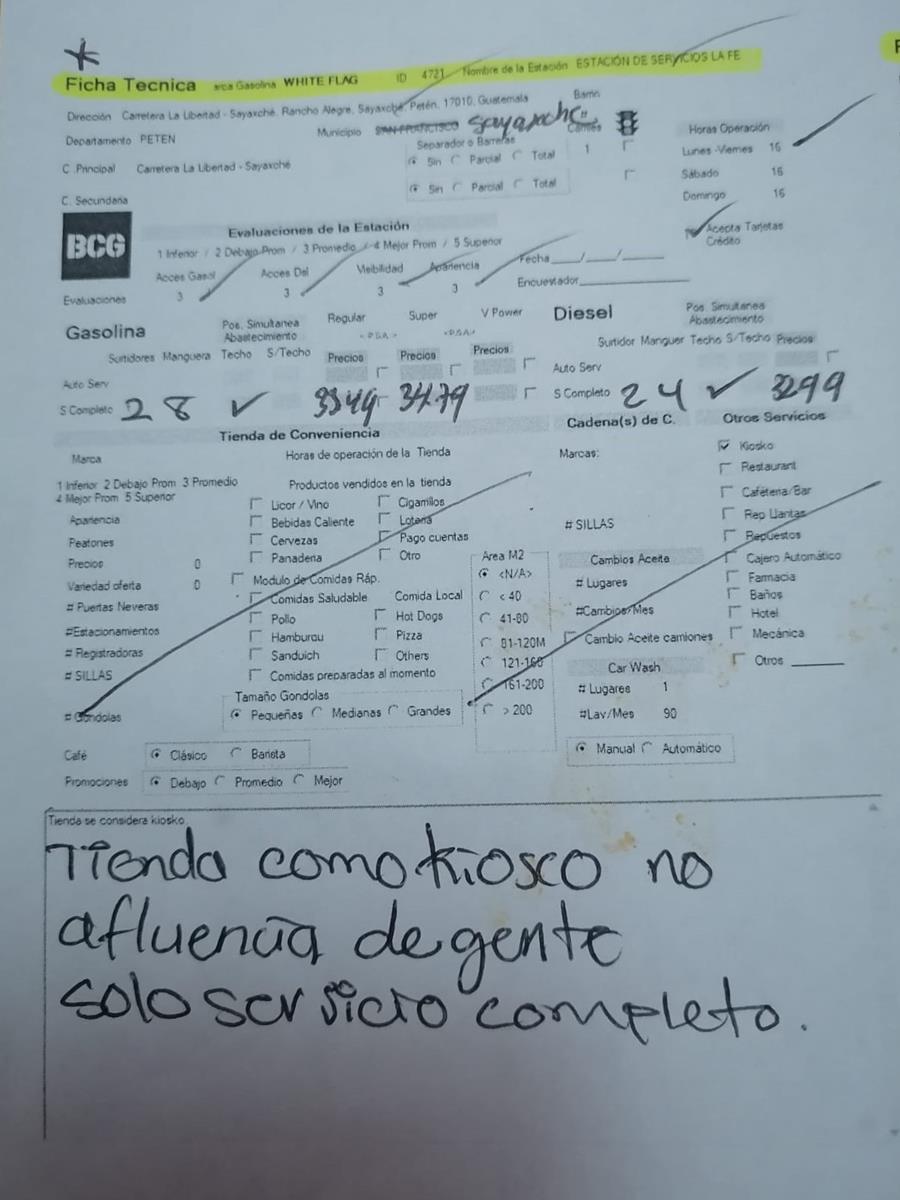 Ficha Tecnica arca Gasolina WHITE FLAG ID 4721 Nombre de la Estación ESTACIÓN DE SERVICIOS LA FE
Dirección Carretera La Libertad - Sayaxché, Rancho Alegre, Sayaxché, Petén, 17010, Guatemala
Departamento PETEN Municipio SAN FRANCISCO Sayaxche
C .Principal Carretera La Libertad - Sayaxché
C. Secundaria
Separador o Barreras
Sin Parcial Total
Sin Parcial Total
Barrio
Carriles
1
Horas Operación
Lunes -Viernes 16
Sábado 16
Domingo 16
Acepta Tarjetas Crédito
BCG
Evaluaciones de la Estación
1 Inferior / 2 Debajo Prom / 3 Promedio / 4 Mejor Prom / 5 Superior
Acces Gasol Acces Del Visibilidad Apariencia
Evaluaciones 3 3 3 3
Fecha ___/___/___
Encuestador
Gasolina
Pos. Simultanea
Abastecimiento
Surtidores Manguera Techo S/Techo
Regular Super V Power
Precios Precios Precios
Auto Serv
S Completo 2 8 ✓ 33.49 34.79
Diesel
Pos. Simultanea
Abastecimiento
Surtidor Manguer Techo S/Techo Precios
Auto Serv
S Completo 2 4 ✓ 32.99
Tienda de Conveniencia
Marca
Horas de operación de la Tienda
1 Inferior 2 Debajo Prom 3 Promedio
4 Mejor Prom 5 Superior
Apariencia
Peatones
Precios 0
Variedad oferta 0
# Puertas Neveras
#Estacionamientos
# Registradoras
# SILLAS
# Gondolas
Productos vendidos en la tienda
Licor / Vino Cigarrillos
Bebidas Caliente Lotería
Cervezas Pago cuentas
Panaderia Otro
Modulo de Comidas Ráp.
Comidas Saludable Comida Local
Pollo Hot Dogs
Hamburgu Pizza
Sanduich Others
Comidas preparadas al momento
Tamaño Gondolas
Pequeñas Medianas Grandes
Area M2
<N/A>
< 40
41-80
81-120M
121-160
161-200
> 200
Cadena(s) de C.
Marcas:
# SILLAS
Cambios Aceite
# Lugares
#Cambios/Mes
Cambio Aceite camiones
Car Wash
# Lugares 1
#Lav/Mes 90
Manual Automático
Otros Servicios
Kiosko
Restaurant
Cafeteria/Bar
Rep Llantas
Repuestos
Cajero Automático
Farmacia
Baños
Hotel
Mecánica
Otros
Café Clásico Barista
Promociones Debajo Promedio Mejor
Tienda se considera kiosko.
Tienda como kiosco no
afluencia de gente
solo servicio completo.